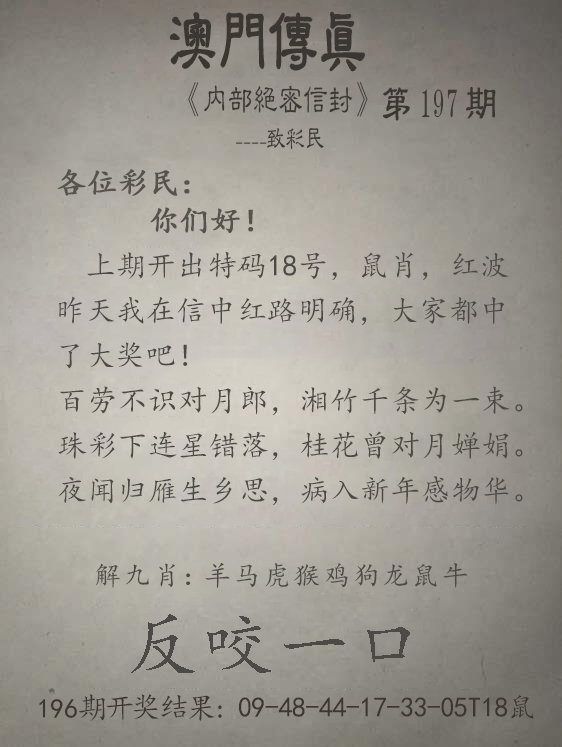 澳門傳眞
《内部絕密信封》第197期
----致彩民
各位彩民：
你们好！
上期开出特码18号，鼠肖，红波
昨天我在信中红路明确，大家都中
了大奖吧！
百劳不识对月郎，湘竹千条为一束。
珠彩下连星错落，桂花曾对月婵娟。
夜闻归雁生乡思，病入新年感物华。
解九肖：羊马虎猴鸡狗龙鼠牛
反咬一口
196期开奖结果：09-48-44-17-33-05T18鼠